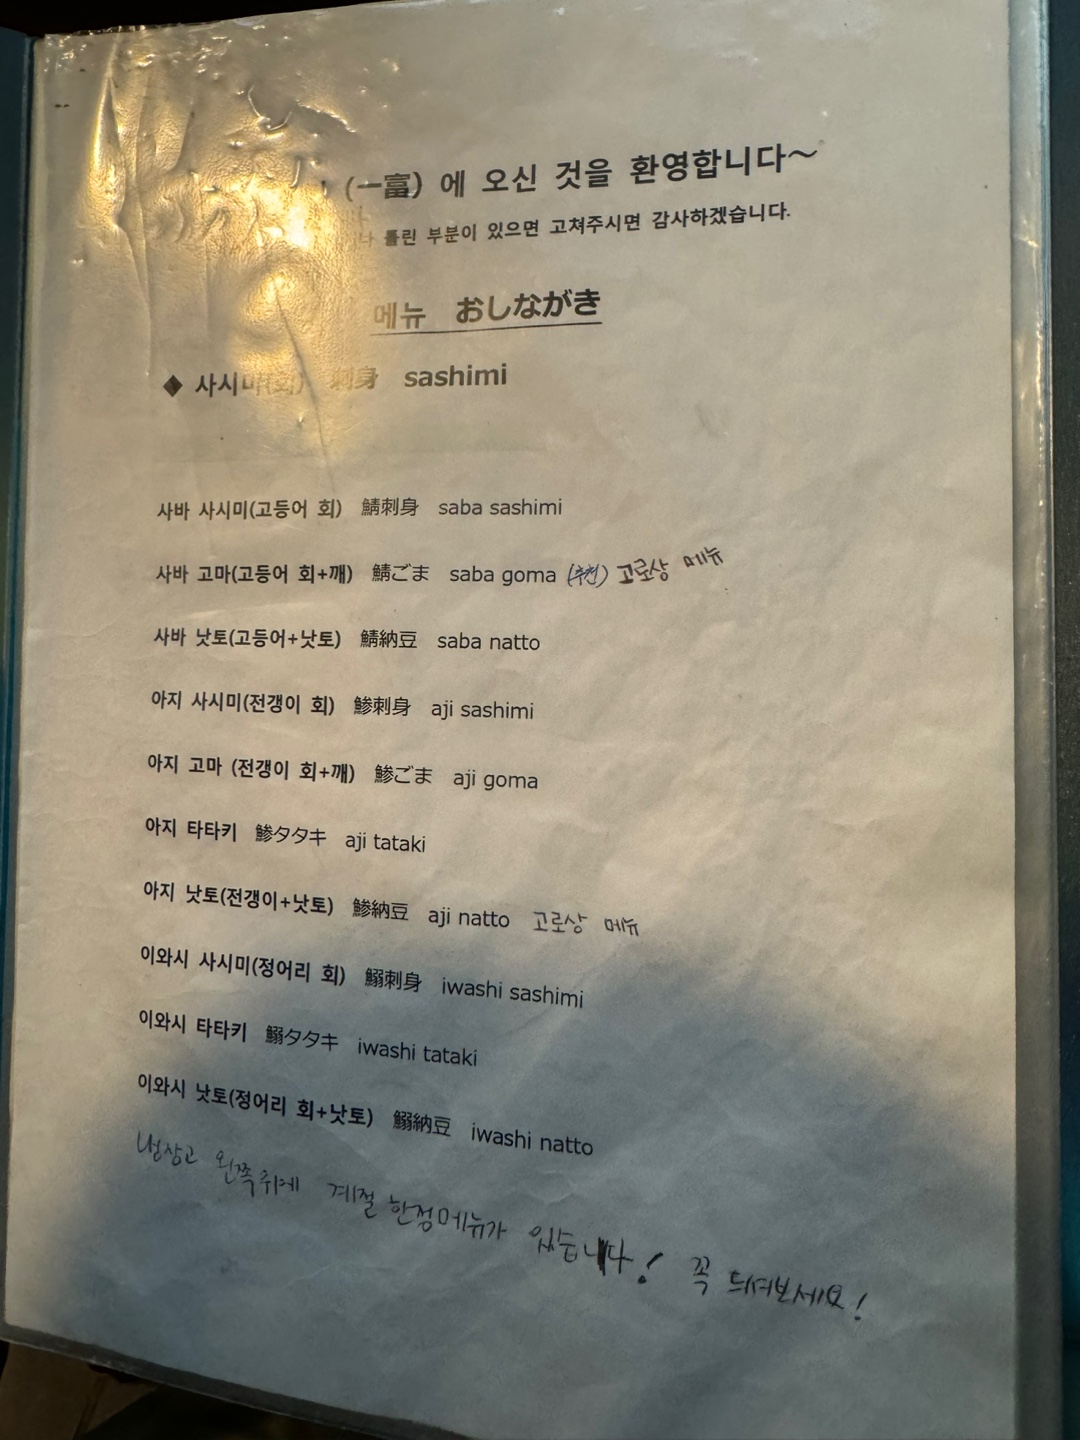 (一富) 에 오신 것을 환영합니다~
틀린 부분이 있으면 고쳐주시면 감사하겠습니다.
메뉴 おしながき
◆ 사시미(회) 刺身 sashimi
사바 사시미(고등어 회) 鯖刺身 saba sashimi
사바 고마(고등어 회+깨) 鯖ごま saba goma (추천) 고로상 메뉴
사바 낫토(고등어+낫토) 鯖納豆 saba natto
아지 사시미(전갱이 회) 鯵刺身 aji sashimi
아지 고마 (전갱이 회+깨) 鯵ごま aji goma
아지 타타키 鯵タタキ aji tataki
아지 낫토(전갱이+낫토) 鯵納豆 aji natto 고로상 메뉴
이와시 사시미(정어리 회) 鰯刺身 iwashi sashimi
이와시 타타키 鰯タタキ iwashi tataki
이와시 낫토(정어리 회+낫토) 鰯納豆 iwashi natto
냉장고 왼쪽위에 계절 한정메뉴가 있습니다! 꼭 드셔보세요!